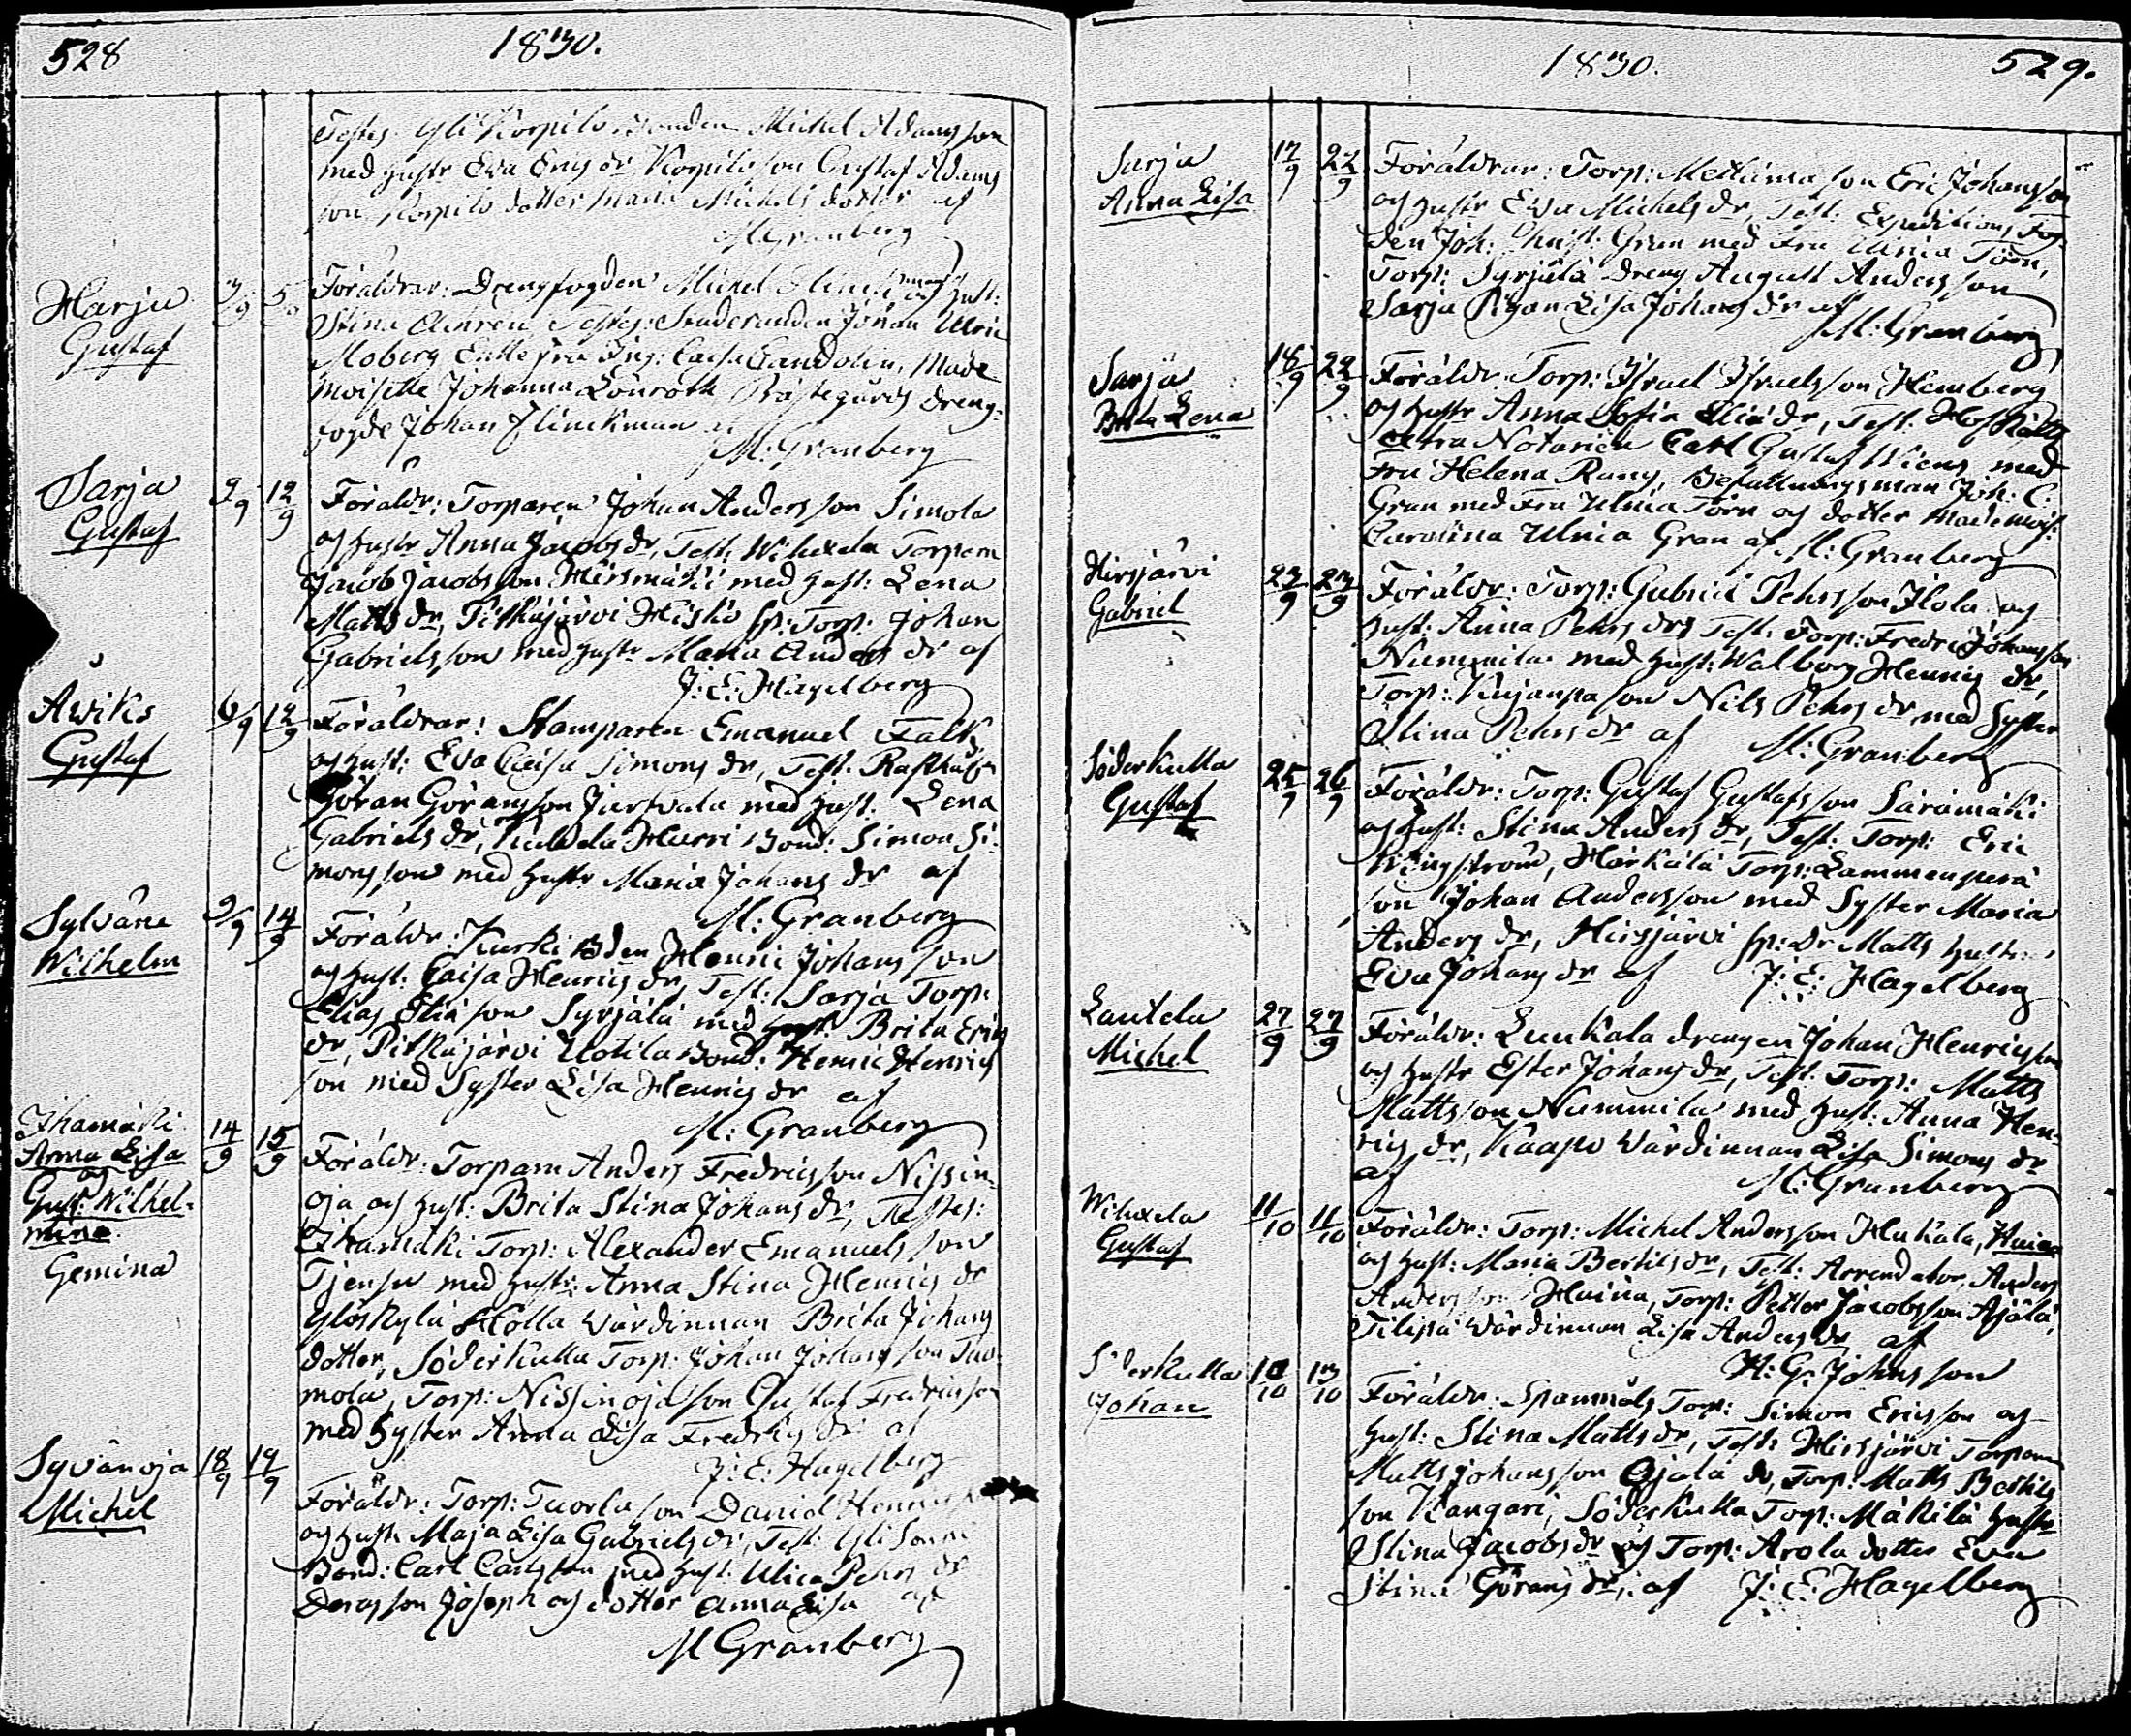 528
1830.
Testes: Yli Korpilo bonden Michel Adamsson
med hustr Eva Erics dr, Korpilo son Gustaf Adams
son Korpilo dotter Maria Michels dotter af
M: Granberg
Harju
Gustaf
3/9 5/9
Föräldrar: Drengfogden Michel och hust:
Stina Testes: Studeranden Johan Ulric
Moberg Enkefru Ing: Caisa Gandolin, Made
moiselle Johanna Lönroth Prästegårds dreng-
fogde Johan Flinckman af
M: Granberg
Sarja
Gustaf
9/9 12/9
Föräldr: Torparen Johan Andersson Simola
og hustr Anna Jacobs dr, Test: Wihxela Torparn
Jacob Jacobsson Hirsmäki med hust: Lena
Matts dr, Pitkäjärvi Hisko sp: Torp: Johan
Gabrielsson med hustr Maria Anders dr af
J: E: Hagelberg
Awiks
Gustaf
6/9 12/9
Föräldrar: Stamparen Emanuel Falk
og hust: Eva Caisa Simons dr, Test: Rusthåll:
Göran Göransson Jurvala med hust: Lena
Gabriels dr, Kuldela Hurri Bond: Simon Si-
monsson med hustr Maria Johans dr af
M: Granberg
Sylväne
Wilhelm
9/9 14/9
Föräldr: Kurki Bden Henric Johansson
og hust: Caisa Henrics dr, Test: Sarja Torp:
Elias Eliasson Syrjälä med hust: Brita Erics
dr, Pitkäjärvi Uotila Bond: Henric Henrics
son med Syster Lisa Henrics dr af
M: Granberg
Ihamäki
Anna Lisa
og
Gust: Wilhel-
mina
Gemina
14/9 15/9
Föräldr: Torparn Anders Fredricsson Nissin-
oja og hust: Brita Stina Johans dr, Testes:
Ihamäki Torp: Alexander Emanuelsson
Tjensu med hustr: Anna Stina Henrics dr
Yliskylä Holla Värdinnan Brita Johans
dotter, Söderkulla Torp: Johan Johansson Tuo-
mola, Torp: Nissinoja son Gustaf Fredricsson
med Syster Anna Lisa Fredrics dr af
J: E: Hagelberg
Syvänoja
Michel
18/9 19/9
Föräldr: Torp: Tuorla son Daniel Henricsson
og hustr Maja Lisa Gabriels dr, Test: Yli Sonni
Bond: Carl Carlsson med hust: Ulica Pehrs dr
Deras son Joseph og dotter Anna Lisa af
M Granberg
1830.
529.
Sarja
Anna Lisa
17/9 22/9
Föräldrar: Torp: Mettima son Eric Johansson
og hustr Eva Michels dr, Test: Expeditions Fog-
den Joh: Christ: Gran med Fru Ulrica Törn,
Torp: Syrjälä dreng August Andersson
Sarja Pigan Lisa Johans dr af
M: Granberg
Sarja
Brita Lena
18/9 22/9
Föräldr: Torp: Israel Israelsson Hemberg
og hustr Anna Sofia Elia dr, Test: HofRätts
Extra Notarien Carl Gustaf Wiens med
Fru Helena Rang, Befallningsman Joh: C:
Gran med Fru Ulrica Törn og dotter Mademois:
Carolina Ulrica Gran af M: Granberg
Hirsjärvi
Gabriel
23/9 23/9
Föräldr: Torp: Gabriel Pehrsson Ilola og
hust: Anna Pehrs dr, Test: Torp: Fredric Johansson
Nummila med hust: Walborg Henrics dr,
Torp: Kujanpä son Nils Pehrs dr med Syster
Stina Pehrs dr af M: Granberg
Söderkulla
Gustaf
25/9 26/9
Föräldr: Torp: Gustaf Gustafsson Saramäki
og hust: Stina Anders dr, Test: Torp: Eric
Wingström, Härkälä Torp: Lammenperä
son Johan Andersson med Syster Maria
Anders dr, Hirsjärvi sp: dr Matts hustr
Eva Johans dr af J: E: Hagelberg
Lautela
Michel
27/9 27/9
Föräldr: Luukala drengen Johan Henricsson
og hustr Ester Johans dr, Test: Torp: Matts
Mattsson Nummila med hust: Anna Hen-
rics dr, Kaapo Värdinnan Lisa Simons dr
af M: Granberg
Wihxela
Gustaf
11/10 11/10
Föräldr: Torp: Michel Andersson Hukala, Huina
og hust: Maria Bertils dr, Test: Arrendator Anders
Andersson Huina, Torp: Petter Jacobsson Ajälä,
Tilipä Värdinnan Lisa Anders dr af
H: G: Johnsson
Söderkulla
Johan
10/10 13/10
Föräldr: Spanmåls Torp: Simon Ericsson og
hust: Stina Matts dr, Test: Hirsjärvi Torparn
Matts Johansson Ojala dr, Torp: Matts Bertils
son Kangari, Söderkulla Torp: Mäkilä hustr
Stina Jacobs dr og Torp: Arola dotter Eva
Stina Görans dr, af J: E: Hagelberg